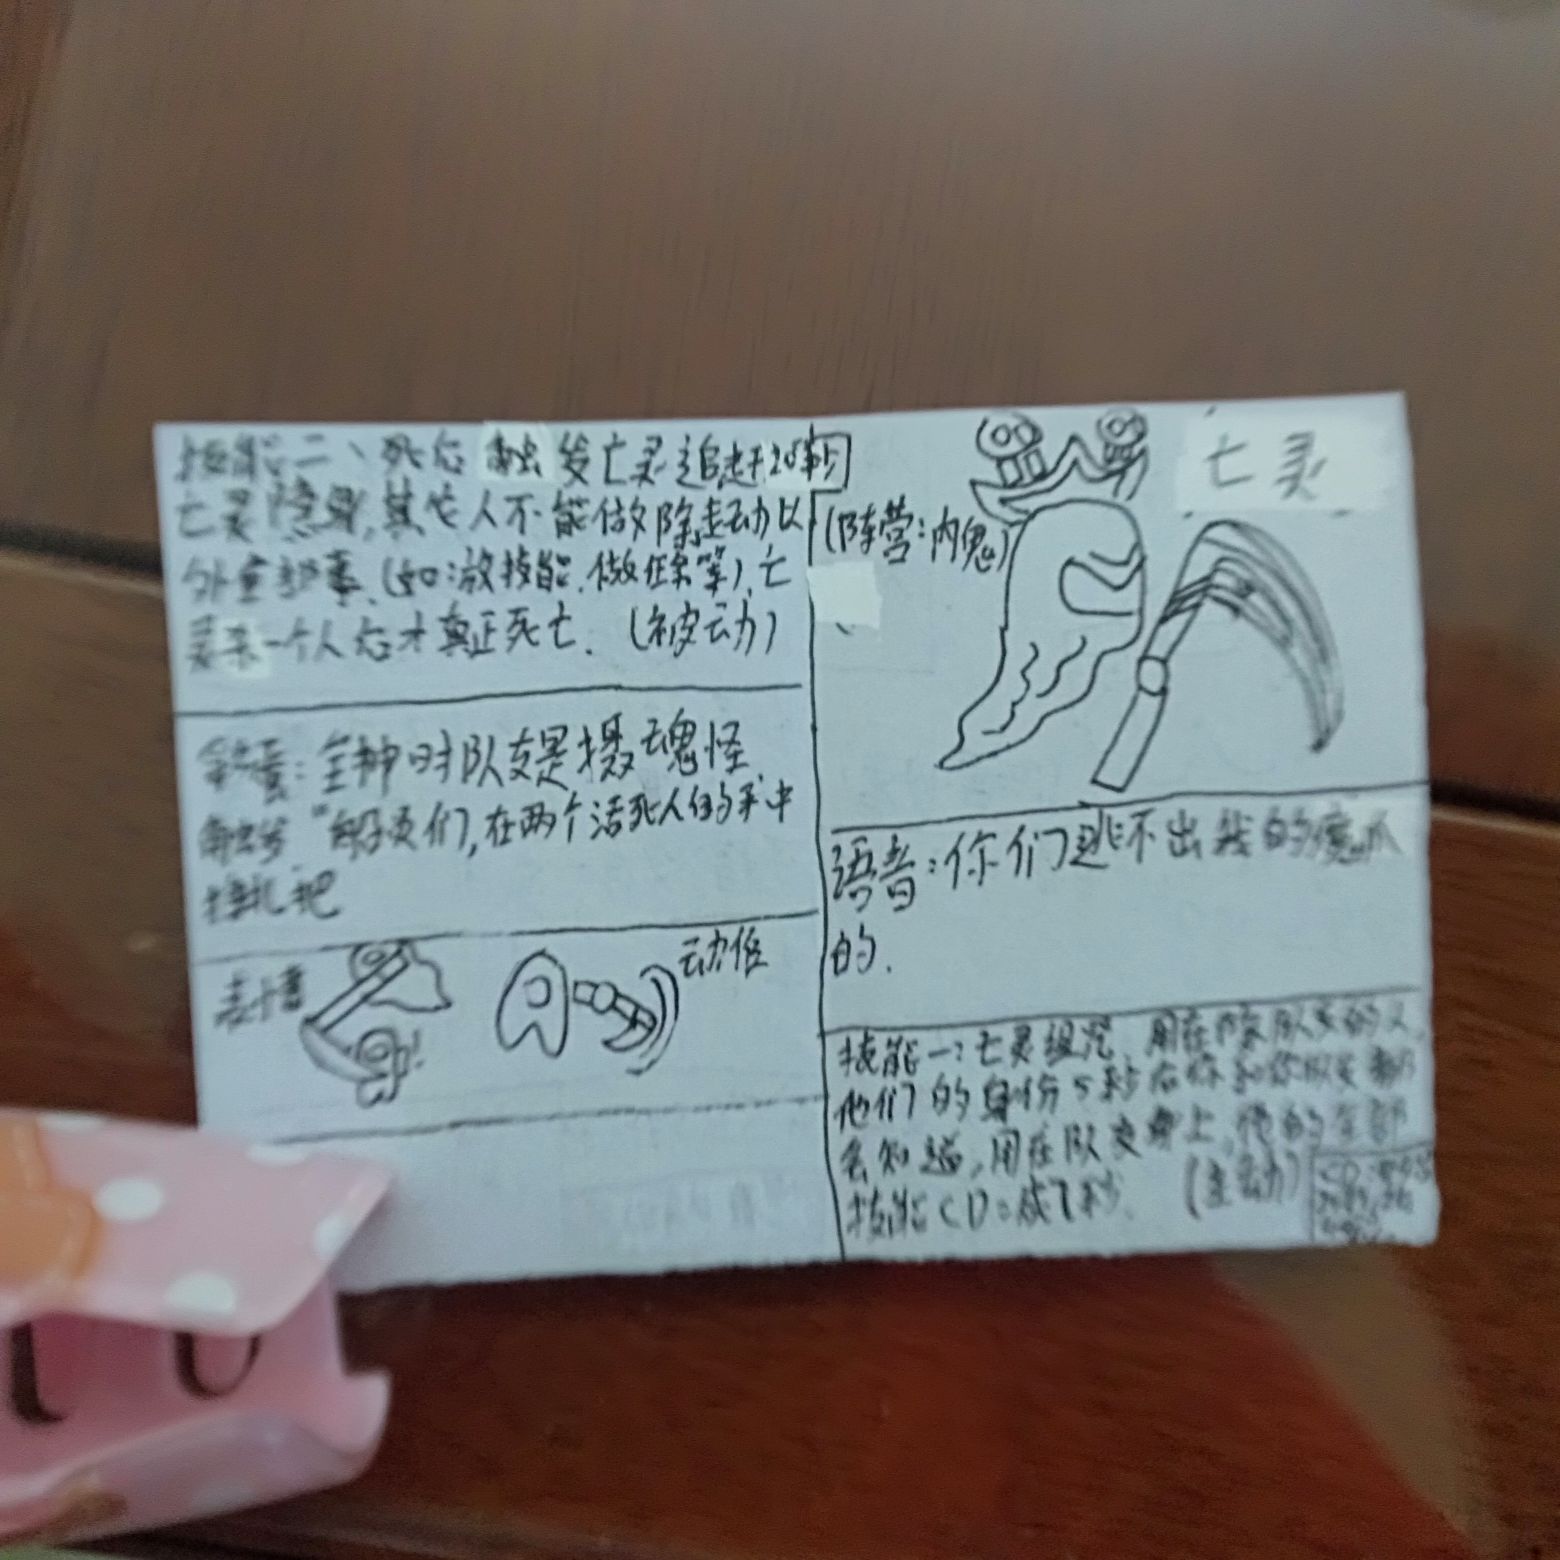 亡灵
(阵营:内鬼)
语音:你们逃不出我的魔爪
的.
技能一:亡灵 用在 队友的人,
他们的身份5秒后你和你队友都
会知道,用在队友身上,他的全部
技能CD:减7秒. (主动)
技能二、死后触发亡灵追赶20秒
亡灵隐身,其他人不能做除走动以
外全部事、(如:放技能、做任务等),亡
灵杀一个人后才真正死亡. (被动)
彩蛋: 时队友是摄魂怪
触发"船员们,在两个活死人的手中
挣扎把
表情
动作